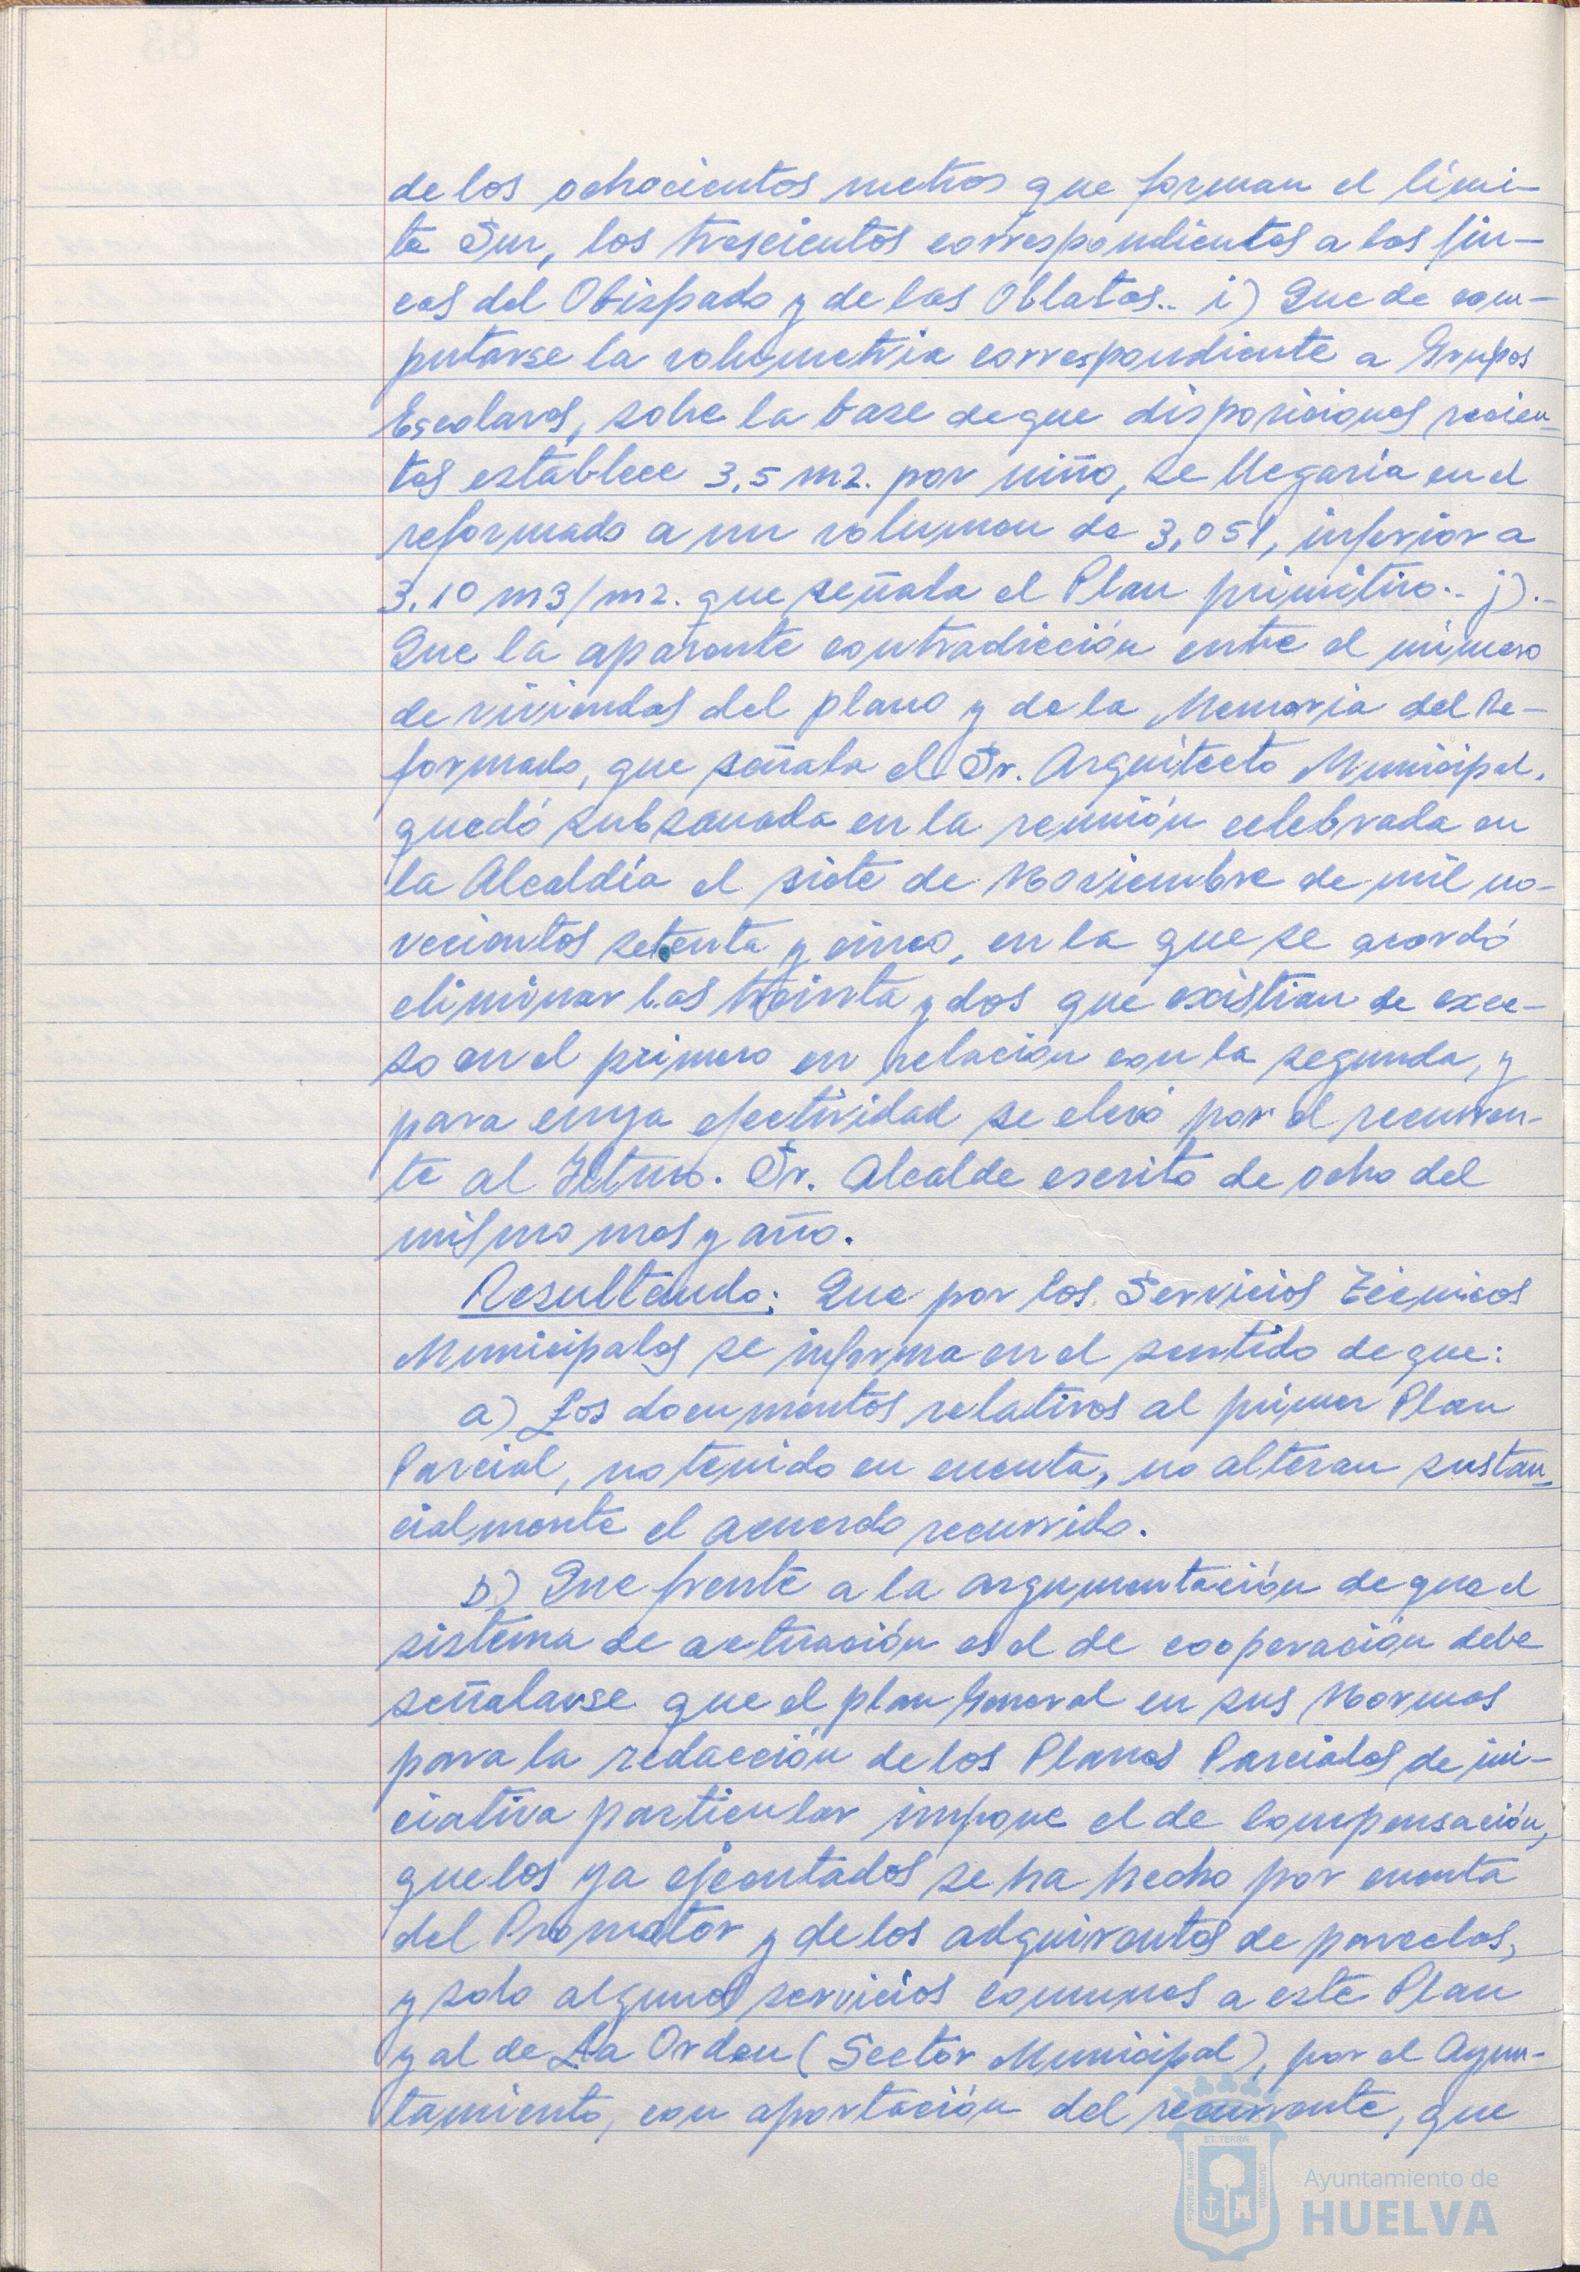 de los ochocientos metros que forman el lími-
te Sur, los trescientos correspondientes a las fin-
cas del Obispado y de las Oblatas.. i) Que de com-
putarse la volumetria correspondiente a Grupos
Escolares, sobre la base de que disposiciones recien-
tes establece 3,5 m2. por niño, se llegaria en el
reformado a un volumen de 3,051, inferior a
3,10 m3/m2. que señala el Plan primitivo.- j).-
Que la aparente contradicción entre el número
de viviendas del plano y de la Memoria del Re-
formado, que señala el Sr. Arquitecto Municipal,
quedó subsanada en la reunión celebrada en
la Alcaldía el siete de Noviembre de mil no-
vecientos setenta y cinco, en la que se acordó
eliminar las treinta y dos que existian de exce-
so en el primero en relación con la segunda, y
para cuya efectividad se elevó por el recurren-
te al Iltmo. Sr. Alcalde escrito de ocho del
mismo mes y año.
Resultando: Que por los Servicios Técnicos
Municipales se informa en el sentido de que:
a) Los documentos relativos al primer Plan
Parcial, no tenido en cuenta, no alteran sustan-
cialmente el acuerdo recurrido.
b) Que frente a la argumentación de que el
sistema de actuación es el de cooperación debe
señalarse que el plan General en sus Normas
para la redacción de los Planes Parciales de ini-
ciativa particular impone el de compensación,
que los ya ejecutados se ha hecho por cuenta
del Promotor y de los adquirentes de parcelas,
y solo algunos servicios comunes a este Plan
y al de La Orden (Sector Municipal), por el Ayun-
tamiento, con aportación del recurrente, que
PORTUS MARIS
ET TERRAE
CUSTODIA
Ayuntamiento de
HUELVA